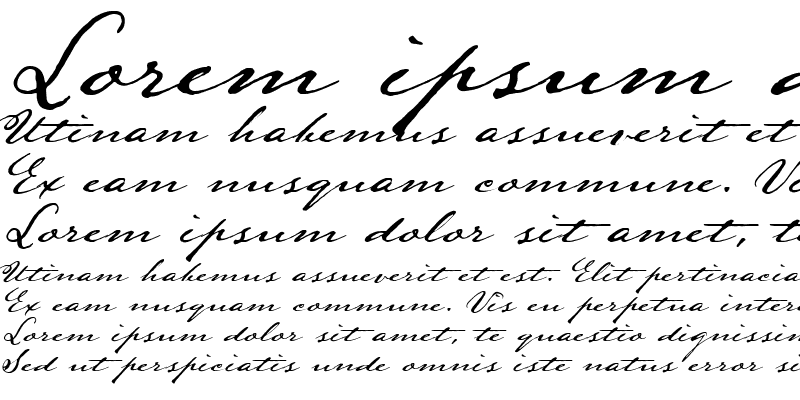 Lorem ipsum
Utinam habemus assueverit et
Ex eam nusquam commune.
Lorem ipsum dolor sit amet,
Utinam habemus assueverit et est. Elit pertinacia
Ex eam nusquam commune. Vis eu perpetua
Lorem ipsum dolor sit amet, te quaestio
Sed ut perspiciatis unde omnis iste natus error